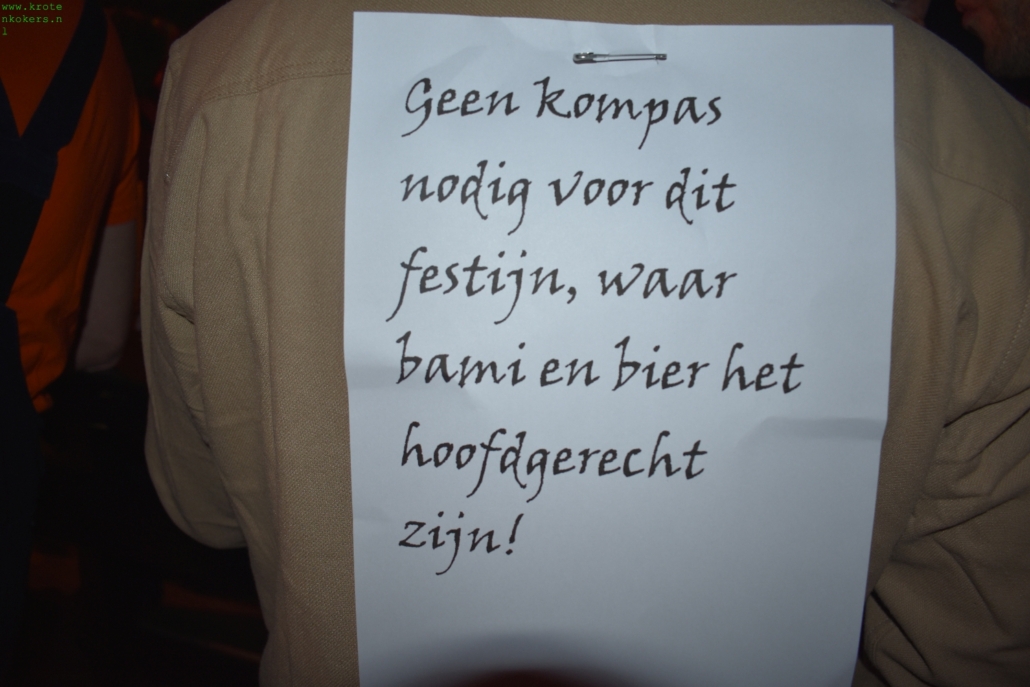 www.krote
nkokers.n
l
Geen kompas
nodig voor dit
festijn, waar
bami en bier het
hoofdgerecht
zijn!